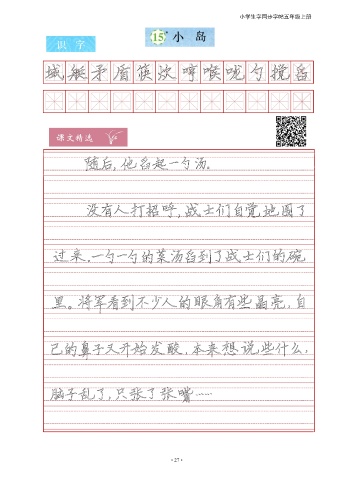 小学生字同步字帖五年级上册
15* 小 岛
识 字
域 艇 矛 盾 筷 次 哼 喉 咙 勺 搅 舀
课文精选
随后,他舀起一勺汤。
没有人打招呼,战士们自觉地围了
过来.一勺一勺的菜汤舀到了战士们的碗
里。将军看到不少人的眼角有些晶亮,自
己的鼻子又开始发酸,本来想说些什么,
脑子乱了,只张了张嘴……
·27·